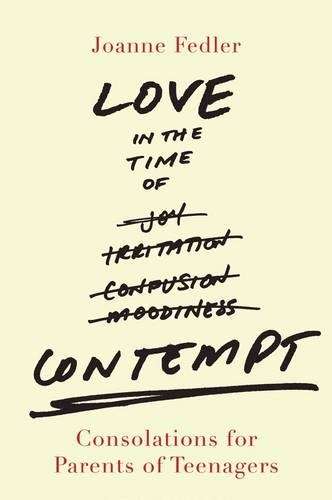 Joanne Fedler
LOVE
IN THE
TIME
OF
JOY
IRRITATION
CONFUSION
MOODINESS
CONTEMPT
Consolations for
Parents of Teenagers